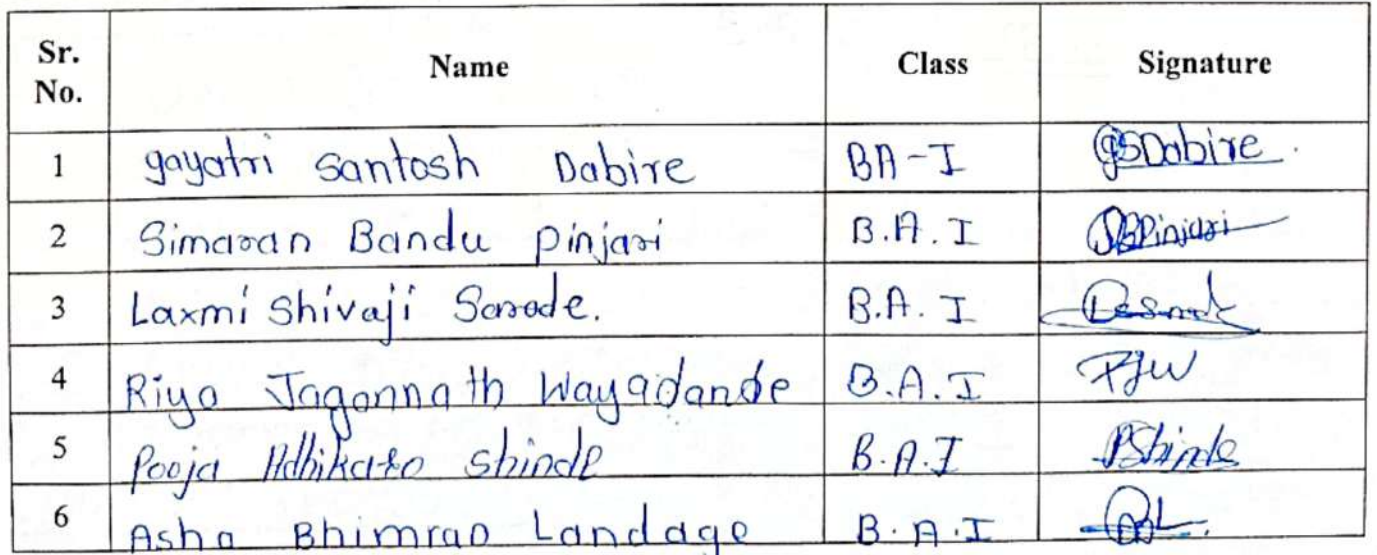 Sr. No. Name Class Signature
1 gayatri santosh Dabire BA-I GSDabire
2 Simaran Bandu pinjari B.A.I SBPinjari
3 Laxmi Shivaji Sarode. B.A.I
4 Riya Jagannath Waydande B.A.I RJW
5 Pooja Adhikaro Shinde B.A.I PShinde
6 Asha Bhimrao Landage B.A.I